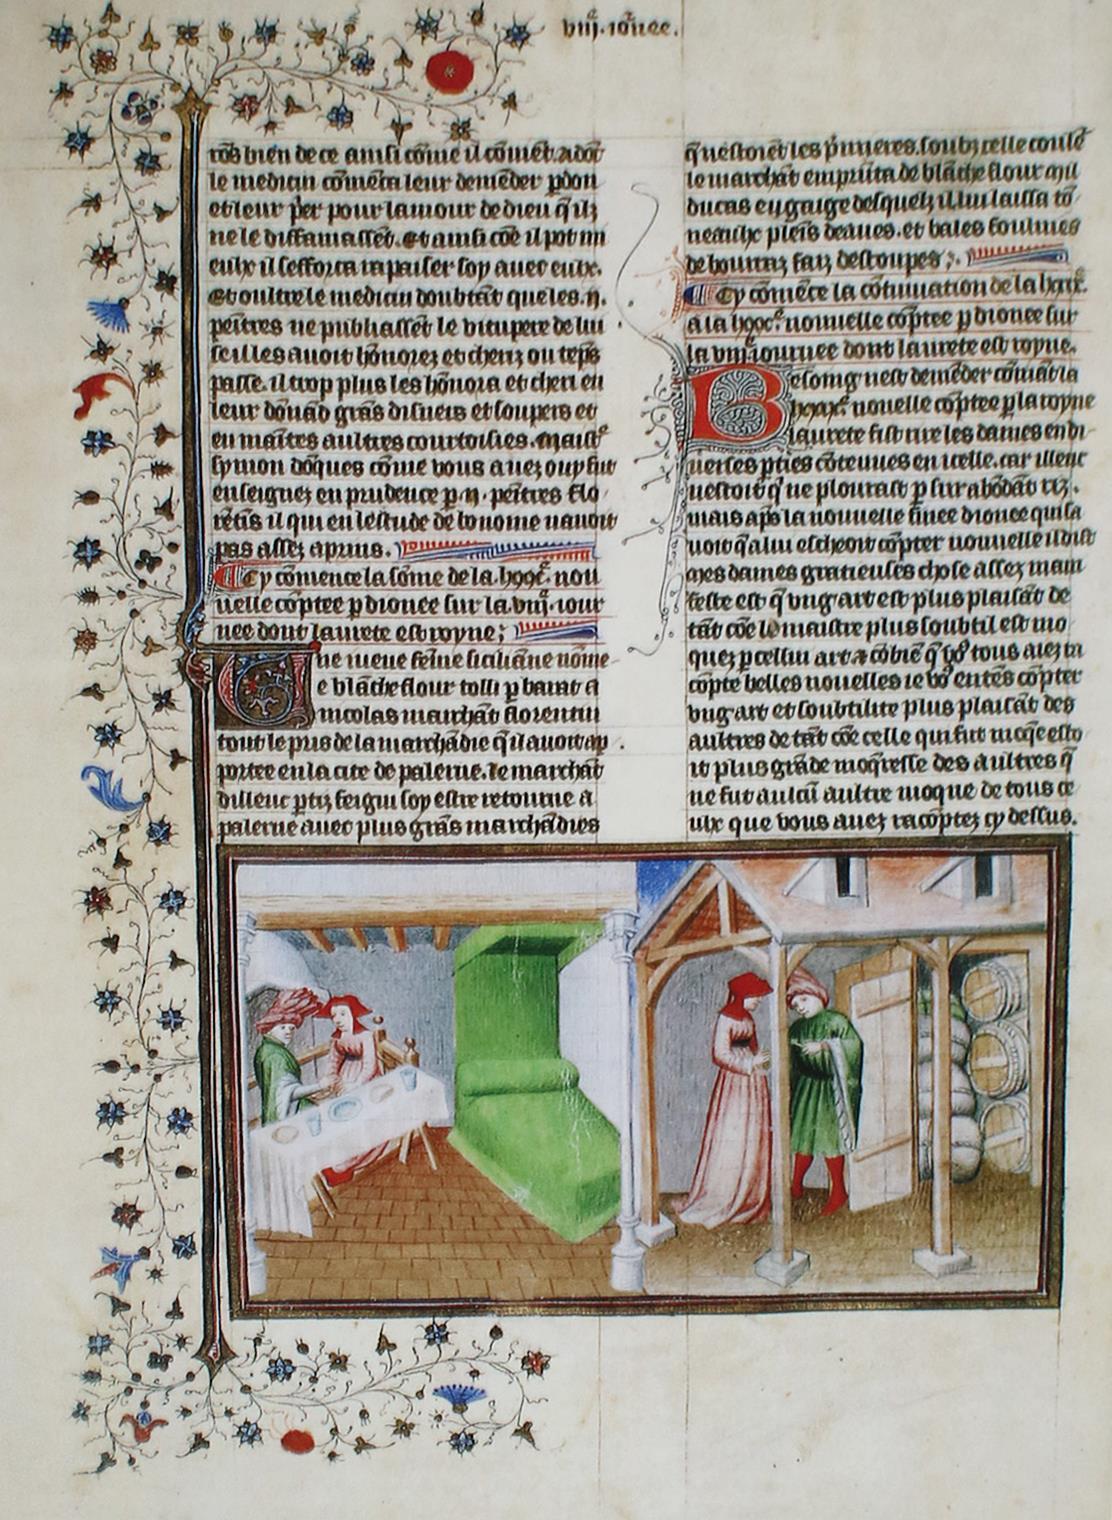 viij. iournee.
tos bien de ce ainsi cōme il cōmēt. adōt
le medicin cōmēca leur demēder pdon
et leur p̄er pour lamour de dieu q̄ ilz
ne le diffamassēt. et ainsi cōe il pot mi
eulx il sefforca rapaiser soy auec eulx.
Et oultre le medicin doubtāt que les .ij.
peītres ne publiassēt le vitupere de lui
seilles auoit hōnorez et cheriz ou tēps
passe. il trop plus les hōnora et cheri en
leur dōnād grās disners et soupers et
en maītes aultres courtoisies. Maistᵉ
symon dōques cōme vous auez ouy fut
enseignez en prudence p .ij. peītres flo
rētīs il qui en lestude de bonome nauoit
pas assez apruis.
Cy cōmence la sōme de la .lxxxᵉ. nou
uelle cōptee p dionee sur la .viijᵉ. iour
nee dont laurete est royne;
Une ieune feme siciliāne nōme
e blāche flour tolli p barat a
nicolas marchāt florentin
tout le pris de la marchādie q̄ il auoit ap
portee en la cite de palerne. le marchāt
dillenc ptiz feigni soy estre retourne a
palerne auec plus grās marchādies
q̄ nestoiēt les p̄mieres. soubz celle coulᵉ
le marchāt emprūta de blāche flour mil
ducas en gaige desquelz il lui laissa tō
neaulx pleīs deaues. et bales fournies
de bourraz faiz destoupes;.
Cy cōmēce la cōtinuation de la lxxxᵉ.
a la lxxxᵉ. nouuelle cōptee p dionee sur
la viijᵉ. iournee dont laurete est royne.
Besoing nest demēder cōmāt la
lxxixᵉ. nouelle cōptee p la royne
laurete fist rire les dames en di
uerses pties cōtenues en icelle. car illenc
nestoit q̄ ne plourast p surabōdāt riz.
mais ap̄s la nouuelle finee dionee qui sa
uoit q̄ a lui escheoit cōpter nouuelle il dist
mes dames gratieuses chose assez mani
feste est q̄ vug art est plus plaisāt de
tāt cōe le maistre plus soubtil est mo
quez p cellui art a cōbiē q̄ vo᷒ tous aiez ia
cōpte belles nouelles ie vo᷒ entēs cōpter
vug art et soubtilite plus plaisāt des
aultres de tāt cōe celle qui fut moq̄e esto
it plus grāde moq̄resse des aultres q̄
ne fut aulcū aultre moque de tous ce
ulx que vous auez racōptez cy dessus.